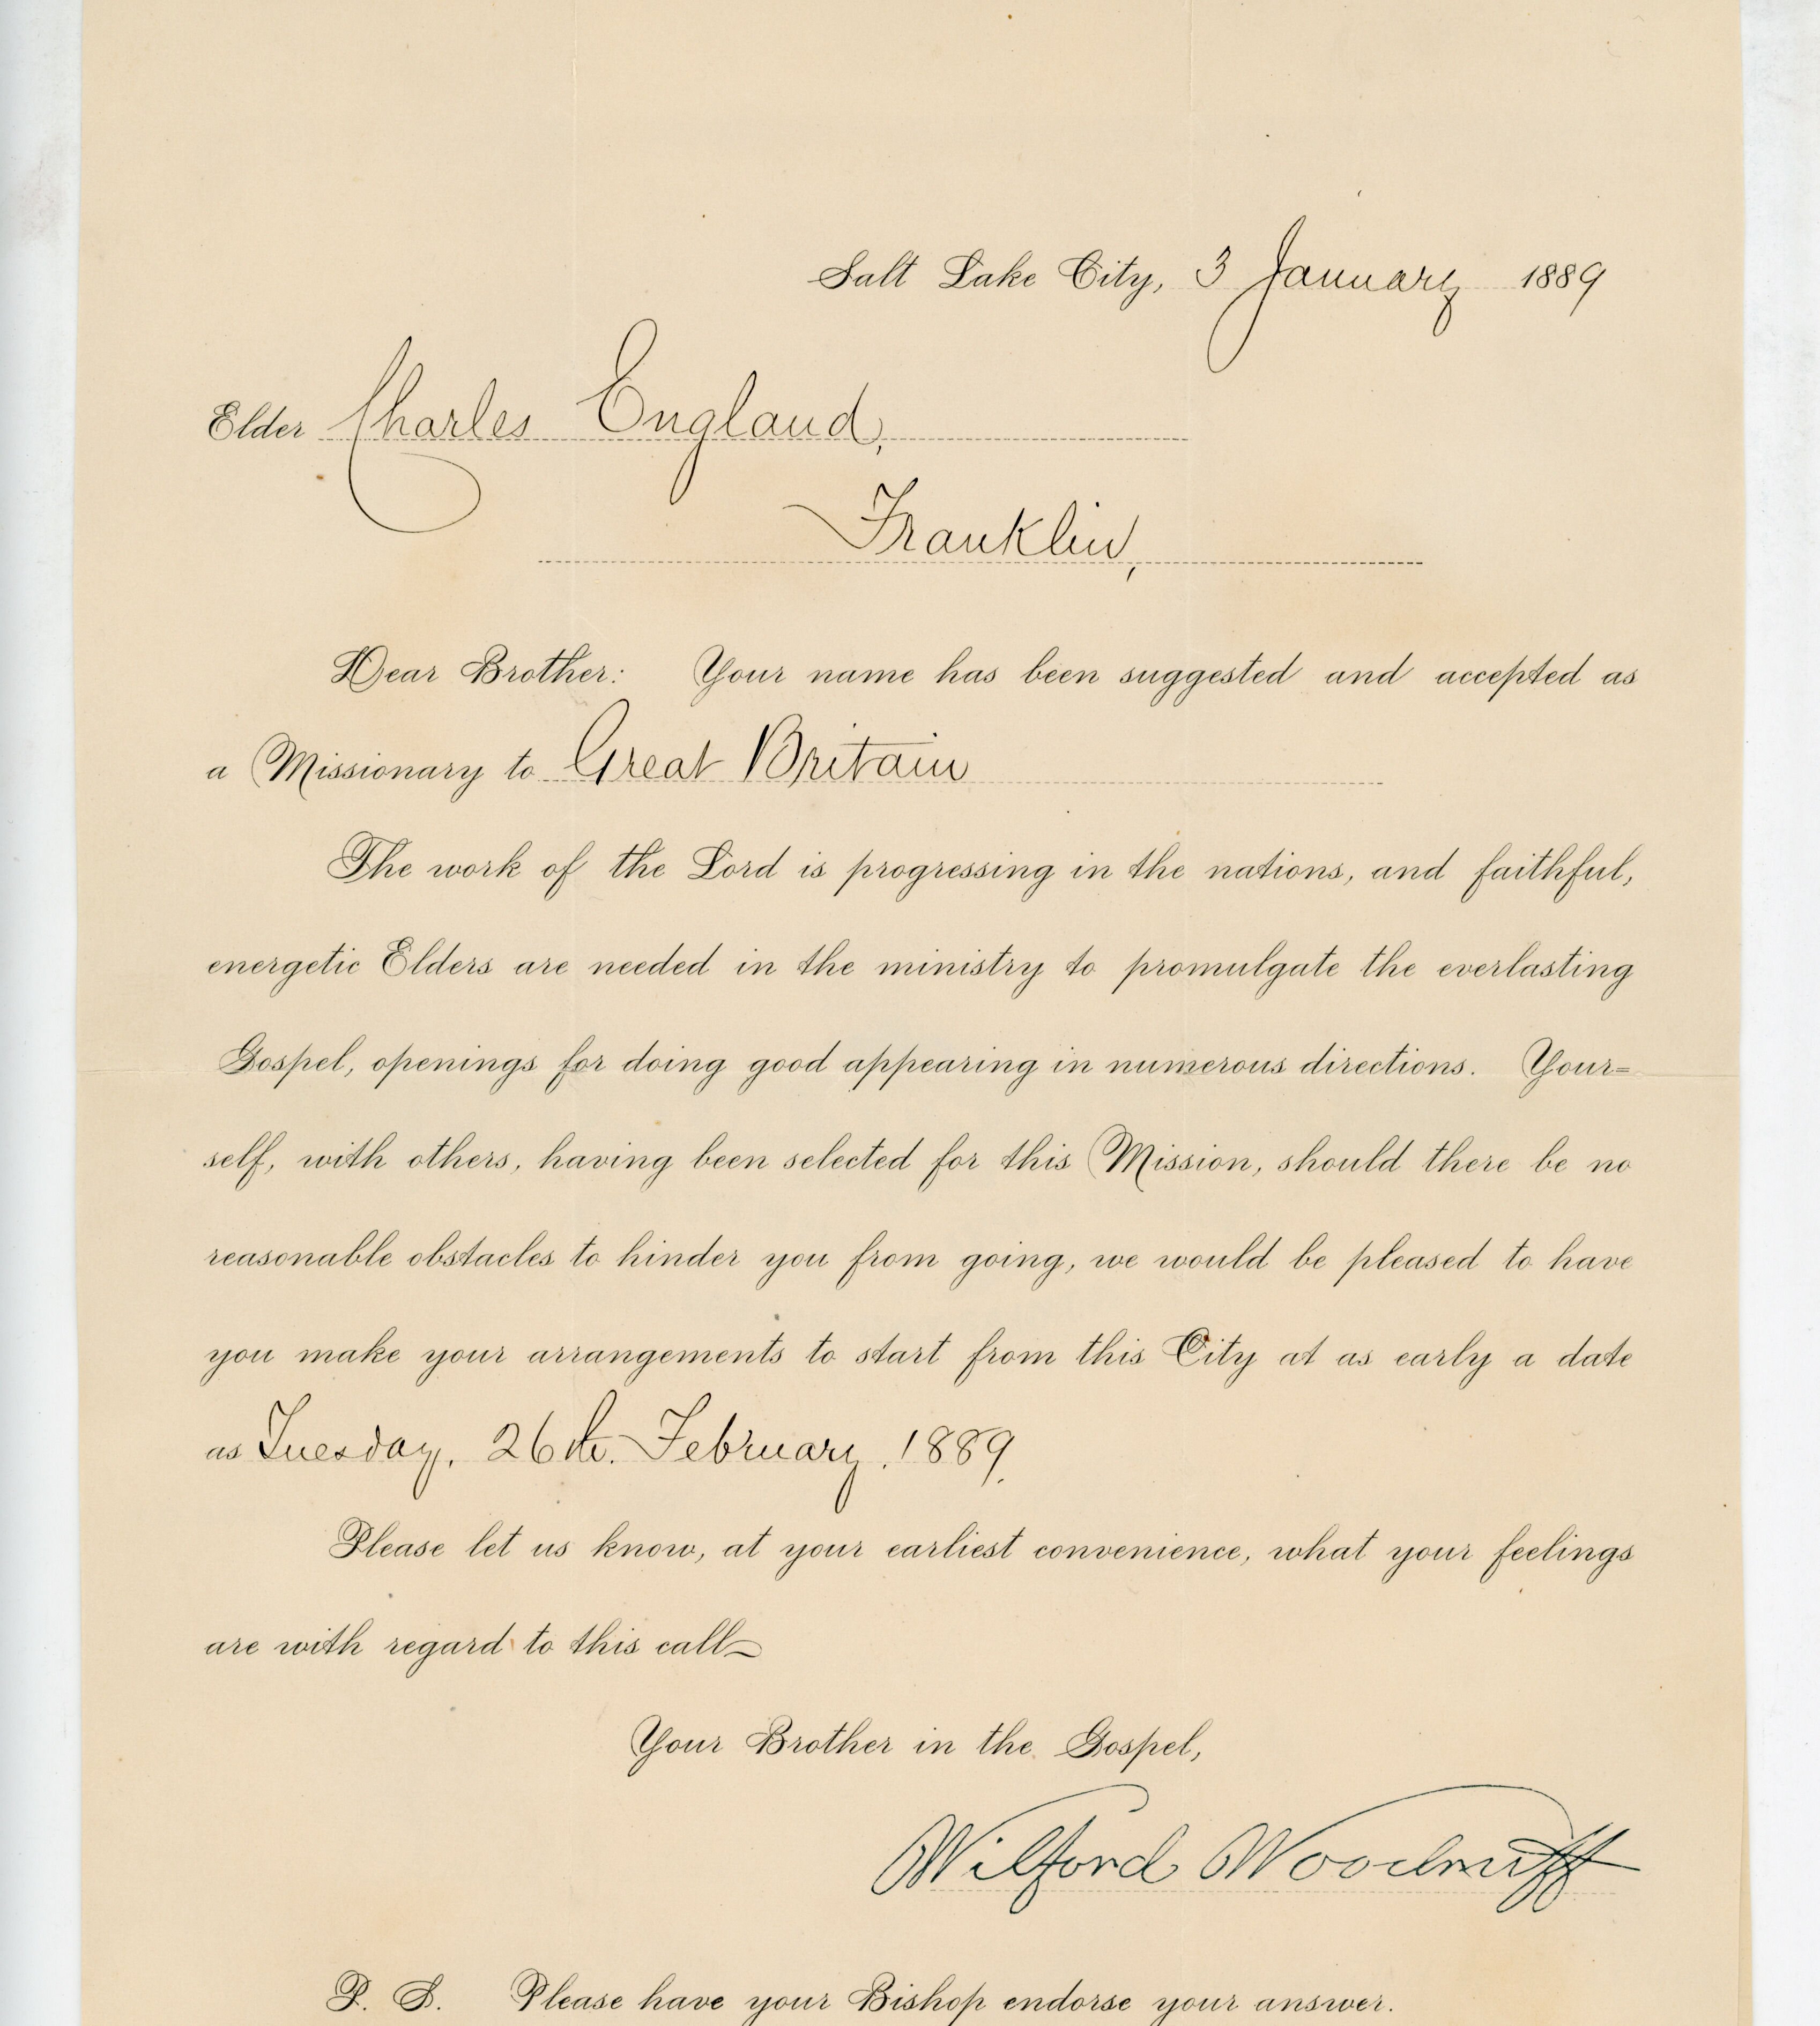 Salt Lake City, 3 January 1889
Elder Charles England,
Franklin,
Dear Brother: Your name has been suggested and accepted as
a Missionary to Great Britain
The work of the Lord is progressing in the nations, and faithful,
energetic Elders are needed in the ministry to promulgate the everlasting
Gospel, openings for doing good appearing in numerous directions. Your=
self, with others, having been selected for this Mission, should there be no
reasonable obstacles to hinder you from going, we would be pleased to have
you make your arrangements to start from this City at as early a date
as Tuesday, 26th. February, 1889.
Please let us know, at your earliest convenience, what your feelings
are with regard to this call
Your Brother in the Gospel,
Wilford Woodruff
P. S. Please have your Bishop endorse your answer.